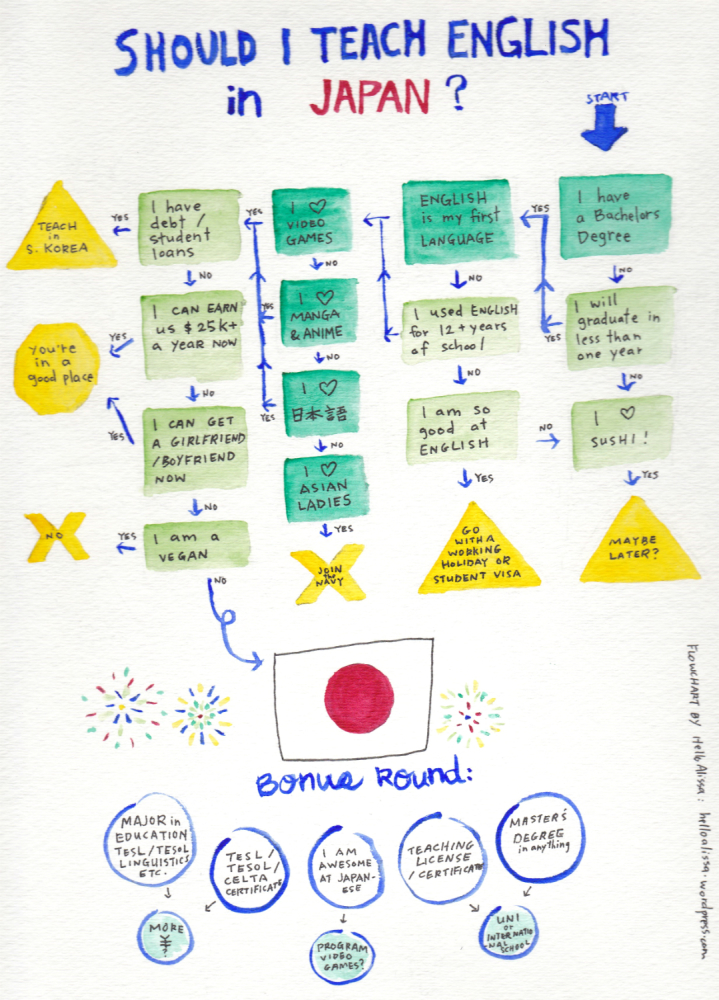 SHOULD I TEACH ENGLISH
in JAPAN?
START
I have
a Bachelors
Degree
YES
NO
I will
graduate in
less than
one year
YES
NO
I ♡
SUSHI!
YES
MAYBE
LATER?
ENGLISH
is my first
LANGUAGE
NO
I used ENGLISH
for 12+ years
of school
NO
I am so
good at
ENGLISH
NO
YES
GO
WITH A
WORKING
HOLIDAY OR
STUDENT VISA
I ♡
VIDEO
GAMES
YES
NO
I ♡
MANGA
& ANIME
YES
NO
I ♡
日本語
YES
NO
I ♡
ASIAN
LADIES
YES
JOIN
the
NAVY
I have
debt/
student
loans
YES
TEACH
in
S. KOREA
NO
I CAN EARN
us $25k+
a YEAR NOW
YES
you're
in a
good place
NO
I CAN GET
A GIRLFRIEND
/BOYFRIEND
NOW
YES
NO
I am a
VEGAN
YES
NO
NO
Bonus Round:
MAJOR in
EDUCATION
TESL/TESOL
LINGUISTICS
ETC.
TESL/
TESOL/
CELTA
CERTIFICATE
I AM
AWESOME
AT JAPAN-
ESE
TEACHING
LICENSE
/CERTIFICATE
MASTER'S
DEGREE
in anything
MORE
¥
?
PROGRAM
VIDEO
GAMES?
UNI
or
INTERNATIO
NAL SCHOOL
FLOWCHART BY HelloAlissa: helloalissa.wordpress.com